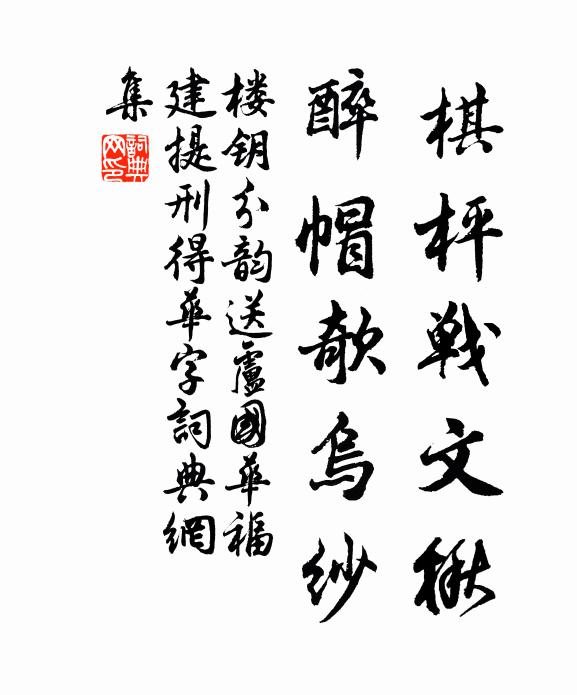 棋枰戦文楸
醉帽欹烏紗
楼钥分韵送盧國華福
建提刑得華字詞典網
集
詞典网印